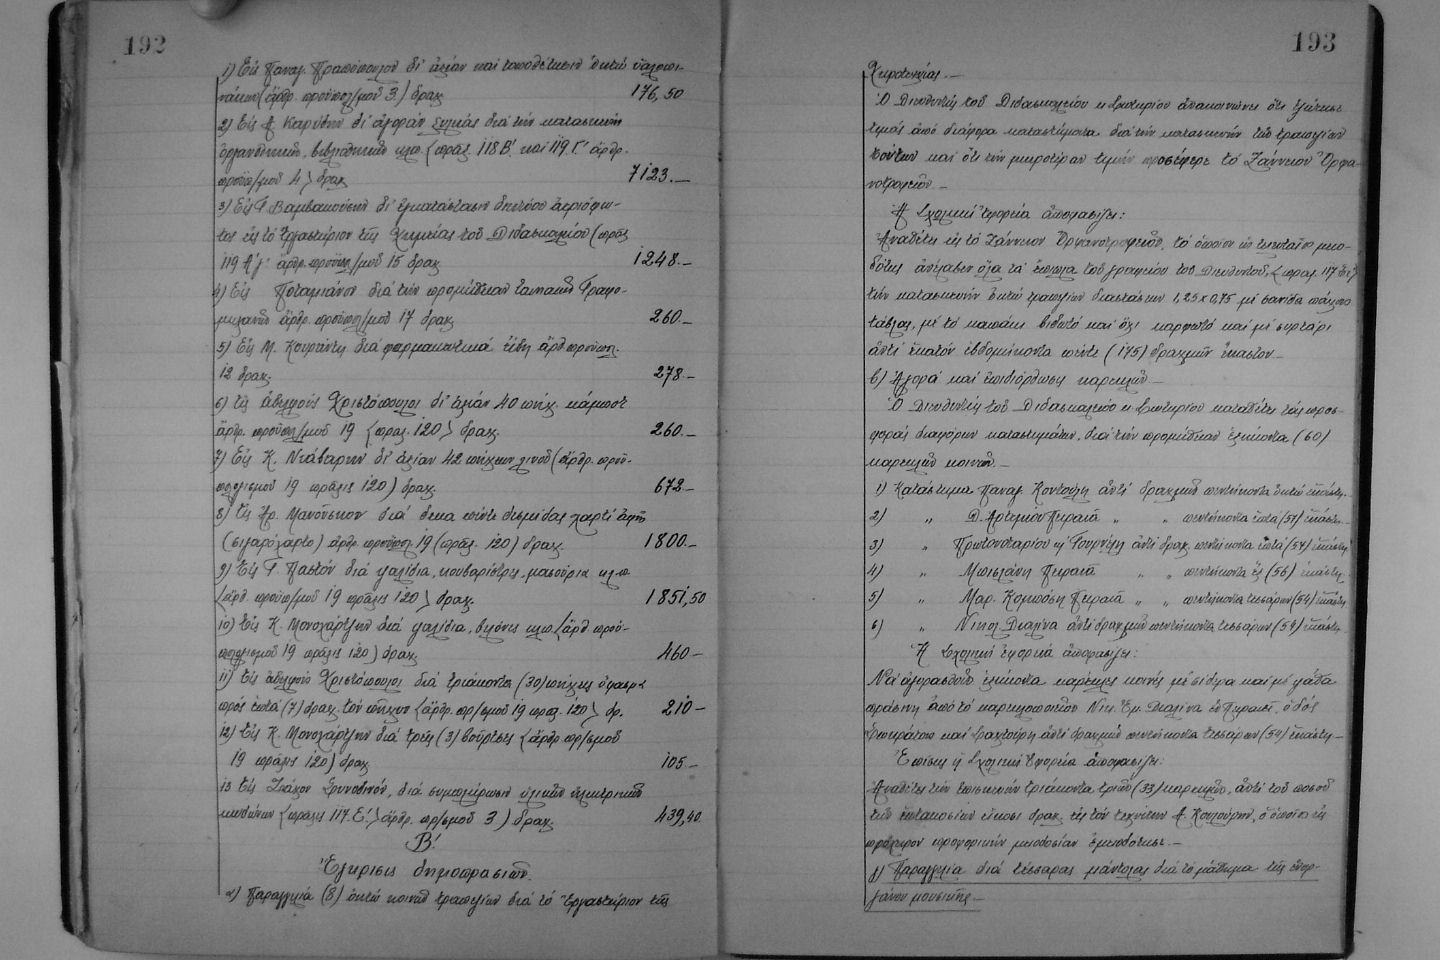 192
1) Εἰς Παναγ. Πραπόπουλον δι' ἀξίαν καὶ τοποθέτησιν ὀκτὼ ὑαλοπι-
νάκων (ἄρθρ. προϋπολ/μοῦ 3.) δραχ. 176,50
2) Εἰς Α Καρύδην δι' ἀγορὰν ξυλείας διὰ τὴν κατασκευὴν
βιβλιοθηκῶν κλπ. (πρᾶξ. 118 Β'. καὶ 119 Γ' ἄρθρ.
προϋπ/μοῦ 4) δραχ 7123.—
3) Εἰς Γ. Βαμβακούσην δι' ἐγκατάστασιν δικτύου ἀεριόφω-
τος εἰς τὸ Ἐργαστήριον τῆς Χημείας τοῦ Διδασκαλείου (πρᾶξ
119 Α' ἄρθρ. προϋπολ/μοῦ 15 δραχ 1248.—
4) Εἰς Ποταμιάνον διὰ τὴν προμήθειαν ταινιῶν Γραφο-
μηχανῶν ἄρθρ. προϋπολ/μοῦ 17 δραχ 260.—
5) Εἰς Μ. διὰ φαρμακευτικὰ εἴδη ἄρθ προϋπολ.
12 δραχ. 278.—
6) Εἰς ἀδελφοὺς Χριστόπουλοι δι' ἀξίαν 40 πήχ. κάμποτ
ἄρθρ. προϋπολ/μοῦ 19 (πραξ. 120) δραχ. 260.—
7) Εἰς Κ. δι' ἀξίαν 42 πήχεων λινοῦ (ἄρθρ. προϋ-
πολογισμοῦ 19 πρᾶξις 120) δραχ. 672—
8) Εἰς Χρ. Μανοῦσκον διὰ δέκα πέντε δεσμίδας χαρτὶ
(σιγαρόχαρτο) ἄρθρ. προϋπολ. 19 (πρᾶξ. 120) δραχ. 1800.—
9) Εἰς Γ. Παστὸν διὰ ψαλίδια, κουβαρίστρες, μασούρια κλπ
(ἄρθ. προϋπ/μοῦ 19 πρᾶξις 120) δραχ. 1851,50
10) Εἰς Κ. Μονοχάρτζην διὰ ψαλίδια, βελόνες κλπ (ἄρθ προϋ-
πολογισμοῦ 19 πρᾶξις 120) δραχ. 460—
11) Εἰς ἀδελφοὺς Χριστόπουλοι διὰ τριάκοντα (30) πήχεις ὕφασμα
πρὸς ἑπτὰ (7) δραχ. τὸν πῆχυν (ἄρθρ. πρ/σμοῦ 19 πραξ. 120) δρ. 210—
12) Εἰς Κ. Μονοχάρτζην διὰ τρεῖς (3) βοῦρτσες (ἄρθρ. πρ/σμοῦ
19 πρᾶξις 120) δραχ 105.—
13 Εἰς διὰ συμπλήρωσιν ὑλικῶν ἠλεκτρικῶν
κωδώνων (πρᾶξις 117. Ε'.) ἄρθρ. πρ/σμοῦ 3) δραχ. 439,40
Β'.
Ἔγκρισις δημοπρασιῶν.
α) Παραγγελία (8) ὀκτὼ κοινῶν τραπεζίων διὰ τὸ Ἐργαστήριον τῆς
193
Χειροτεχνίας.—
Ὁ Διευθυντὴς τοῦ Διδασκαλείου κ Σωτηρίου ἀνακοινώνει ὅτι ἐζήτησε
τιμὰς ἀπὸ διάφορα καταστήματα διὰ τὴν κατασκευὴν τῶν τραπεζίων
τούτων καὶ ὅτι τὴν μικροτέραν τιμὴν προσέφερε τὸ Ζάννειον Ὀρφα-
νοτροφεῖον.—
Ἡ Σχολικὴ Ἐφορεία ἀποφασίζει:
Ἀναθέτει εἰς τὸ Ζάννειον Ὀρφανοτροφεῖον, τὸ ὁποῖον ὡς τελευταῖος μειο-
δότης ἀνέλαβεν ὅλα τὰ ἔπιπλα τοῦ γραφείου τοῦ Διευθυντοῦ (πραξ. 117
τὴν κατασκευὴν ὀκτὼ τραπεζίων διαστάσεων 1,25 x 0,75 μὲ σανίδα
μὲ τὸ καπάκι βιδωτὸ καὶ ὄχι καρφωτὸ καὶ μὲ συρτάρι
ἀντὶ ἑκατὸν ἑβδομήκοντα πέντε (175) δραχμῶν ἕκαστον.—
β) Ἀγορὰ καὶ ἐπιδιόρθωσις καρεκλῶν.—
Ὁ Διευθυντὴς τοῦ Διδασκαλείου κ. Σωτηρίου καταθέτει τὰς προσ-
φορὰς διαφόρων καταστημάτων, διὰ τὴν προμήθειαν ἑξήκοντα (60)
καρεκλῶν κοινῶν.—
1) Κατάστημα Παναγ. Κοντούλη ἀντὶ δραχμῶν πεντήκοντα ὀκτὼ ἑκάστη.
2) „ Δ. Ἀρτεμίου Πειραιᾶ „ „ πεντήκοντα ἑπτὰ (57) ἑκάστη.
3) „ Πρωτονοταρίου ἢ Γουρνέλη ἀντὶ δραχ. πεντήκοντα ἑπτὰ (57) ἑκάστη
4) „ Πειραιᾶ „ „ πεντήκοντα ἓξ (56) ἑκάστη.
5) „ Μαρ. Πειραιᾶ „ „ πεντήκοντα τεσσάρων (54) ἑκάστη
6) „ Νικολ Διαλινα ἀντὶ δραχμῶν πεντήκοντα τεσσάρων (54) ἑκάστη.
Ἡ Σχολικὴ Ἐφορεία ἀποφασίζει:
Νὰ ἀγορασθοῦν ἑξήκοντα καρέκλες κοινὲς μὲ σίδερα καὶ μὲ ψάθα
πράσινη ἀπὸ τὸ καρεκλοποιεῖον Νικ. Ἐμ. Διαλινα ἐν Πειραιεῖ, ὁδὸς
Σωκράτους καὶ ἀντὶ δραχμῶν πεντήκοντα τεσσάρων (54) ἑκάστη—
Ἐπίσης ἡ Σχολικὴ Ἐφορεία ἀποφασίζει:
Ἀναθέτει τὴν ἐπισκευὴν τριάκοντα τριῶν (33) καρεκλῶν, ἀντὶ τοῦ ποσοῦ
τῶν εἴκοσι δραχ. εἰς τὸν τεχνίτην Α. Κουλούρην, ὁ ὁποῖος εἰς
πρότερον προφορικὴν μειοδοσίαν ἐμειοδότησε.—
γ) Παραγγελία διὰ τέσσαρας διὰ τὸ μάθημα τῆς ἐνορ-
γάνου μουσικῆς.—